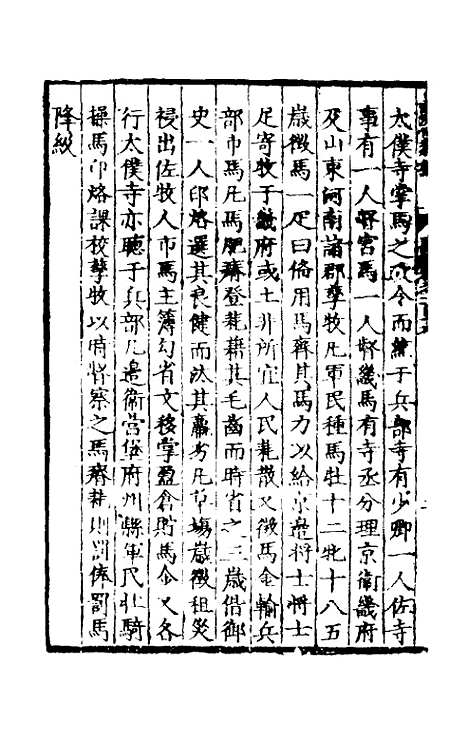 太僕寺掌馬之政令而統于兵部寺有少卿一人佐寺
事有一人督宮馬一人督畿馬有寺丞分理京衛畿府
及山東河南諸郡孳牧凡軍民種馬牡十二牝十八五
歲徵馬一疋曰俻用馬齊其馬力以給京邊將士將士
足寄牧于畿府或土非所宜人民耗散又徵馬金輸兵
部市馬凡馬肥瘠登耗藉其毛齒而時省之三歲偕御
史一人印烙選其良健而汰其羸劣凡草塲歲徵租災
祲出佐牧人市馬主簿勾省文移掌盈倉貯馬金又各
行太僕寺亦聽于兵部凡邊衛營堡府州縣軍民壯騎
操馬印烙課校孳牧以時督察之馬瘠耗則罰俸罰馬
降級